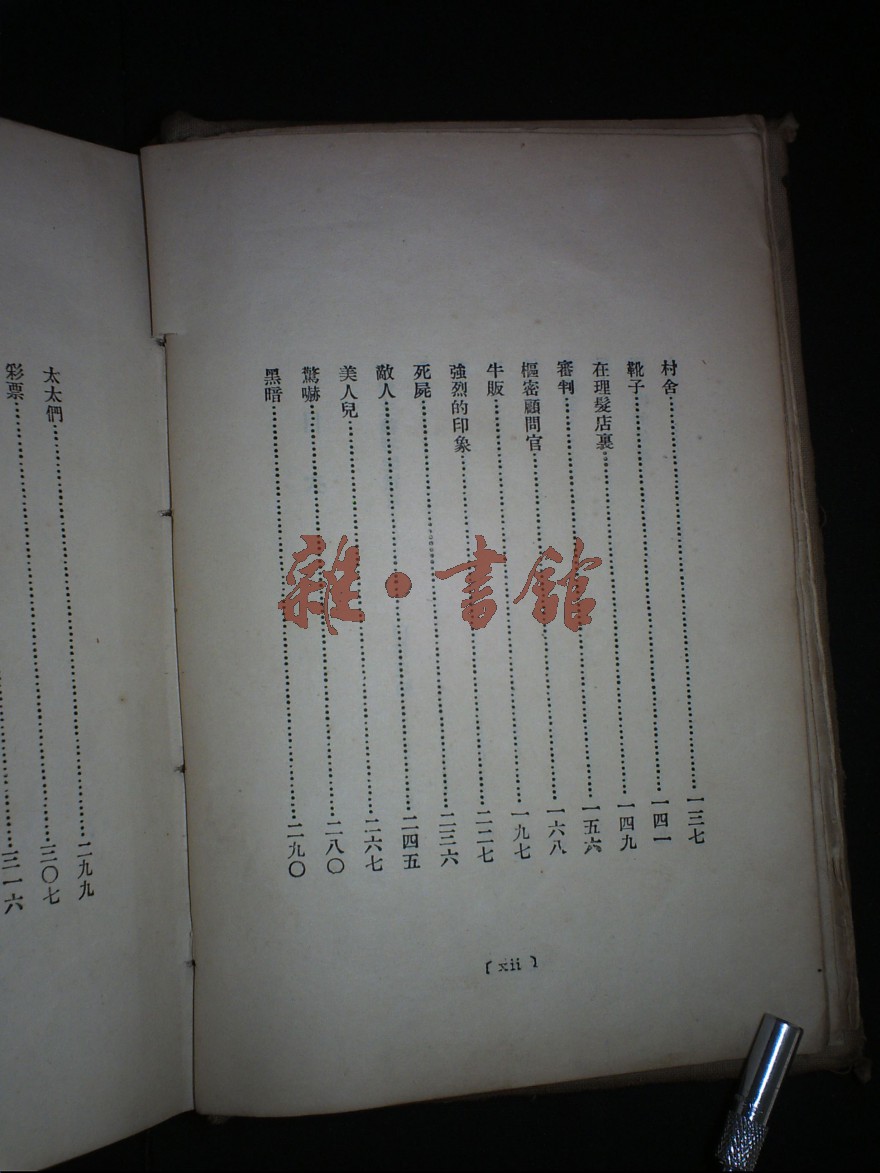 村舍……一三七
靴子……一四一
在理髮店裏……一四九
審判……一五六
樞密顧問官……一六八
牛販……一九七
強烈的印象……二二七
死屍……二三六
敵人……二四五
美人兒……二六七
驚嚇……二八〇
黑暗……二九〇
〔xii〕
二九九
太太們……三〇七
彩票……三一六
雜·書館